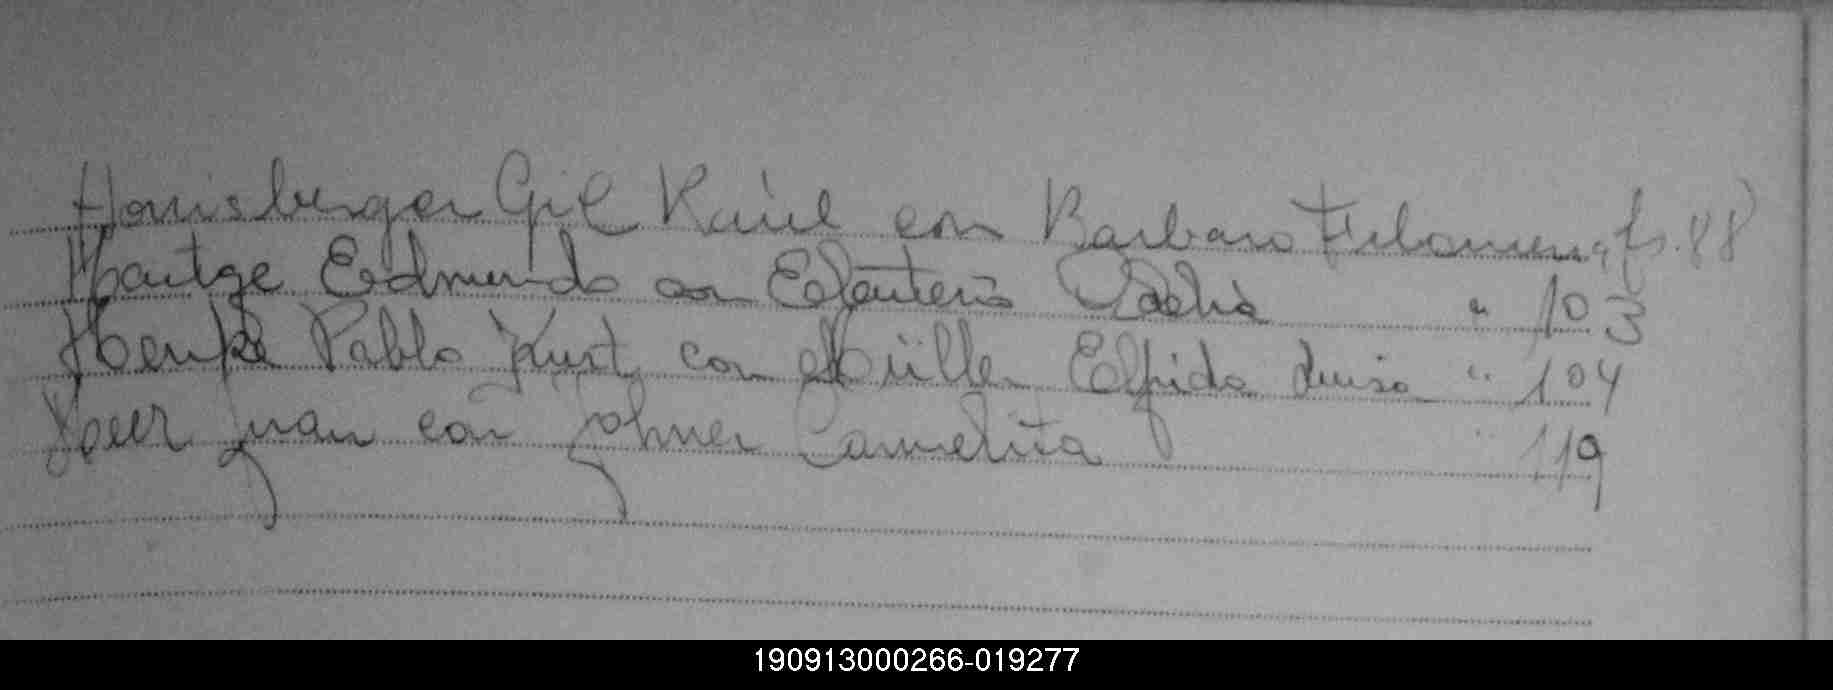 Honisberger Gil Raúl con Barbaro Filomena, fs. 88
Hartge Edmundo con Delia " 103
Henke Pablo Kurt con Müller Elfrida Luisa " 104
Juan con Johner Carmelita " 119
190913000266-019277